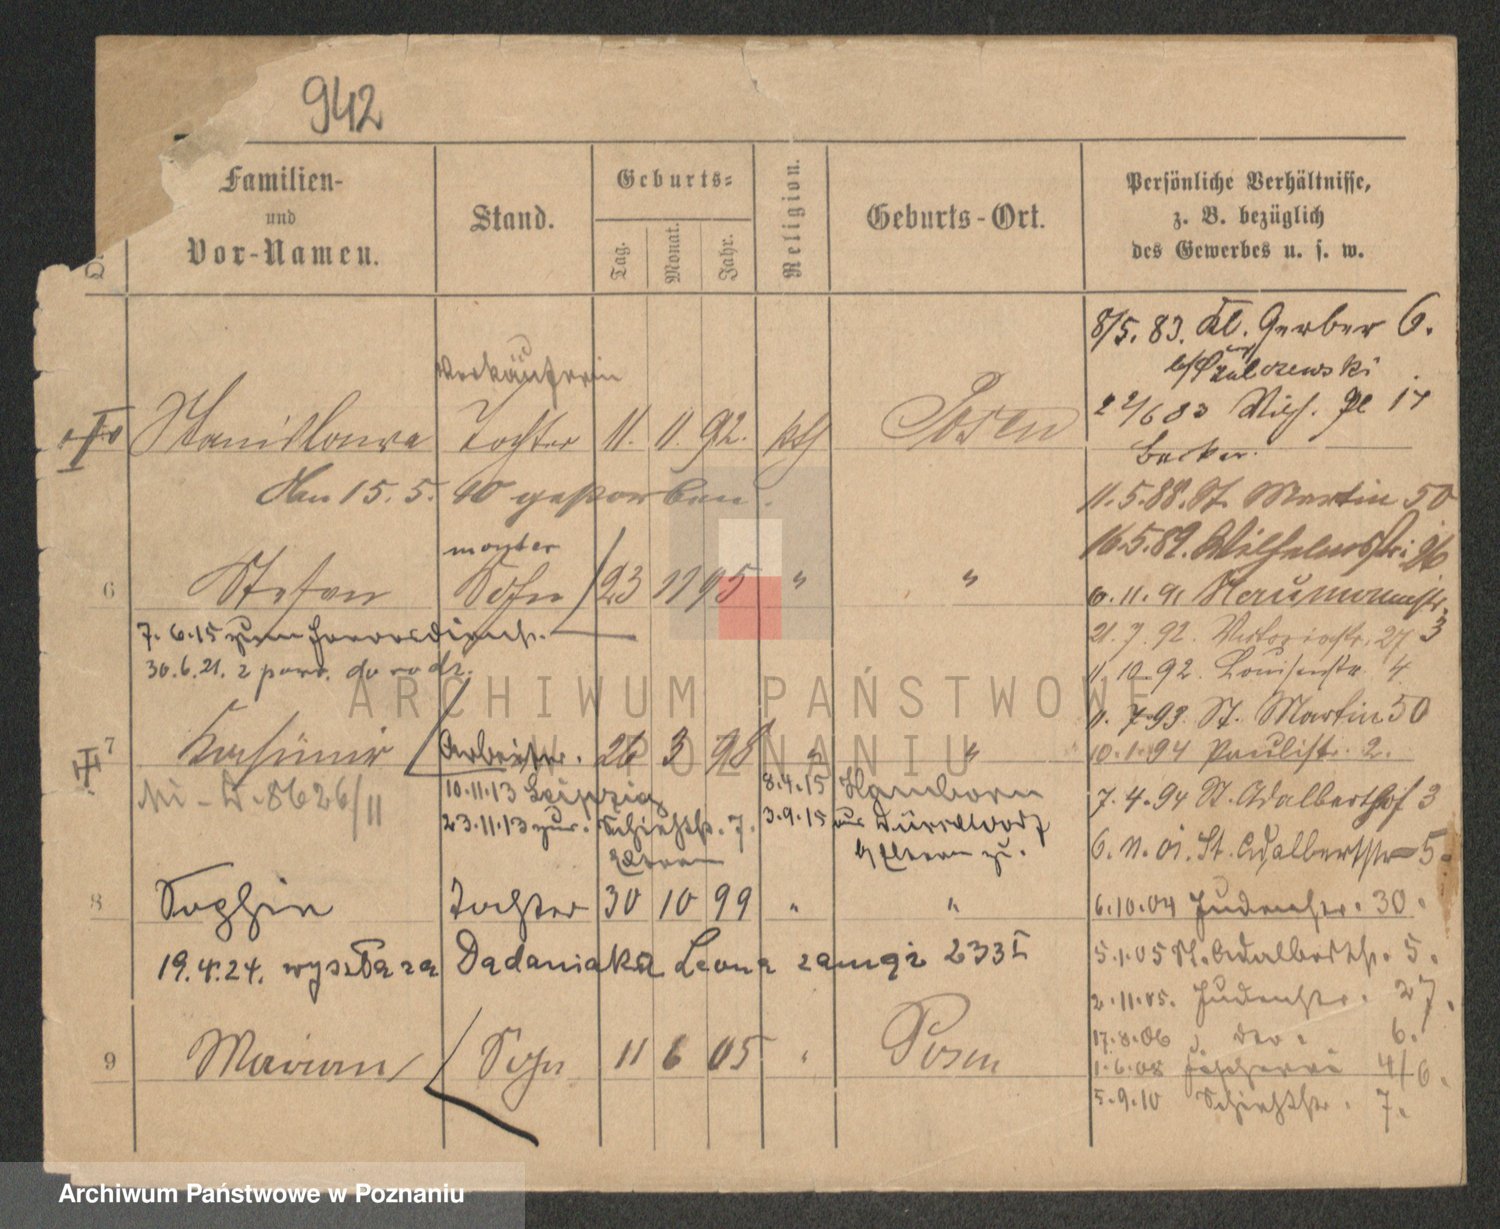 942
Familien-
und
Vor-Namen.
Stand.
Geburts-
Tag.
Monat.
Jahr.
Religion.
Geburts-Ort.
Persönliche Verhältnisse,
z. B. bezüglich
des Gewerbes u. s. w.
8/5. 83. Kl. Gerber 6.
22/6 83 Wilh. Pl 17
Becker.
11.5.88. St. Martin 50
16.5.89. Wilhelmstr. 26
10.11.91 Naumannstr. 3
21.7.92. Victoriastr. 27
11.10.92. Louisenstr. 4
11.7.93. St. Martin 50
10.1.94 Paulistr. 2.
7.4.94 St. Adalberthof 3
6.11.01. St. Adalbertstr 5.
6.10.04 Judenstr. 30.
5.1.05 St. Adalbertstr. 5.
2.11.05. Judenstr. 27.
17.8.06 6.
1.6.08 Fischerei 4/6.
5.9.10 Schiehstr. 7.
Verkäuferin
Stanislawa Tochter 11. 11. 92. kth Posen
Am 15. 5. 10 gestorben.
monter
6 Stefan Sohn 23 12 95 " "
7.6.15 zum Heeresdienst.
30.6.21. z powr. do rodz.
7 Kasimir Arbeiter. 26 3 98 " "
10.11.13 Leipzig 8.4.15 Hamborn
23.11.13 zur. Schiehstr. 7. 3.9.15 aus Düsseldorf
Eltern b/ Eltern zu.
8 Sophie Tochter 30 10 99 " "
19.4.24. wyszła za Dadaniaka Leona zamąż 233
9 Marian Sohn 11 6 05 " Posen
ARCHIWUM PAŃSTWOWE
W POZNANIU
Archiwum Państwowe w Poznaniu